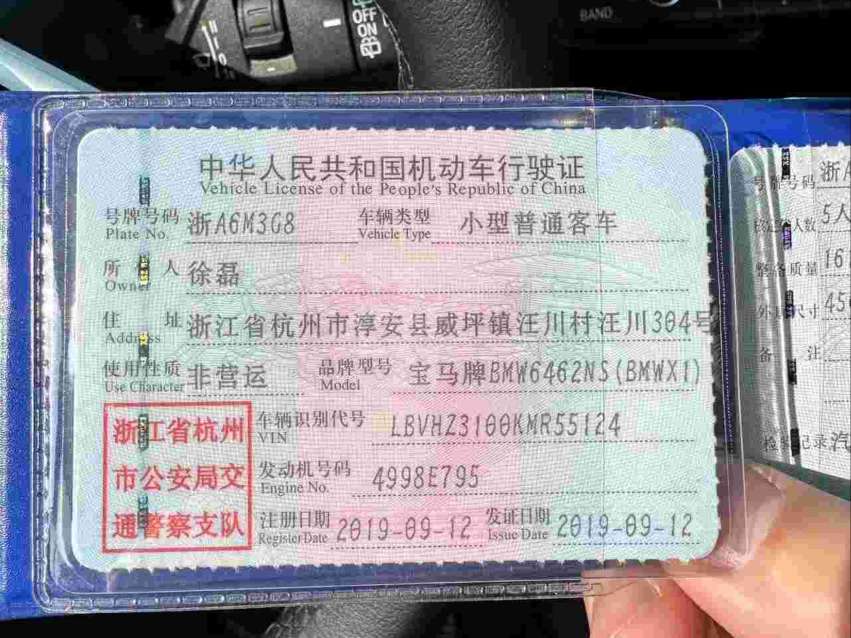 OFF
ON
BAND
中华人民共和国机动车行驶证
Vehicle License of the People's Republic of China
号牌号码 浙A6M3G8 车辆类型 小型普通客车
Plate No. Vehicle Type
所有人 徐磊
Owner
住址 浙江省杭州市淳安县威坪镇汪川村汪川304号
Address
使用性质 非营运 品牌型号 宝马牌BMW6462NS(BMWX1)
Use Character Model
浙江省杭州
市公安局交
通警察支队
车辆识别代号 LBVHZ3100KMR55124
VIN
发动机号码 4998E795
Engine No.
注册日期 2019-09-12 发证日期 2019-09-12
Register Date Issue Date
号牌号码 浙A
人数 5人
整备质量 161
外廓尺寸 456
备注
检验记录 汽